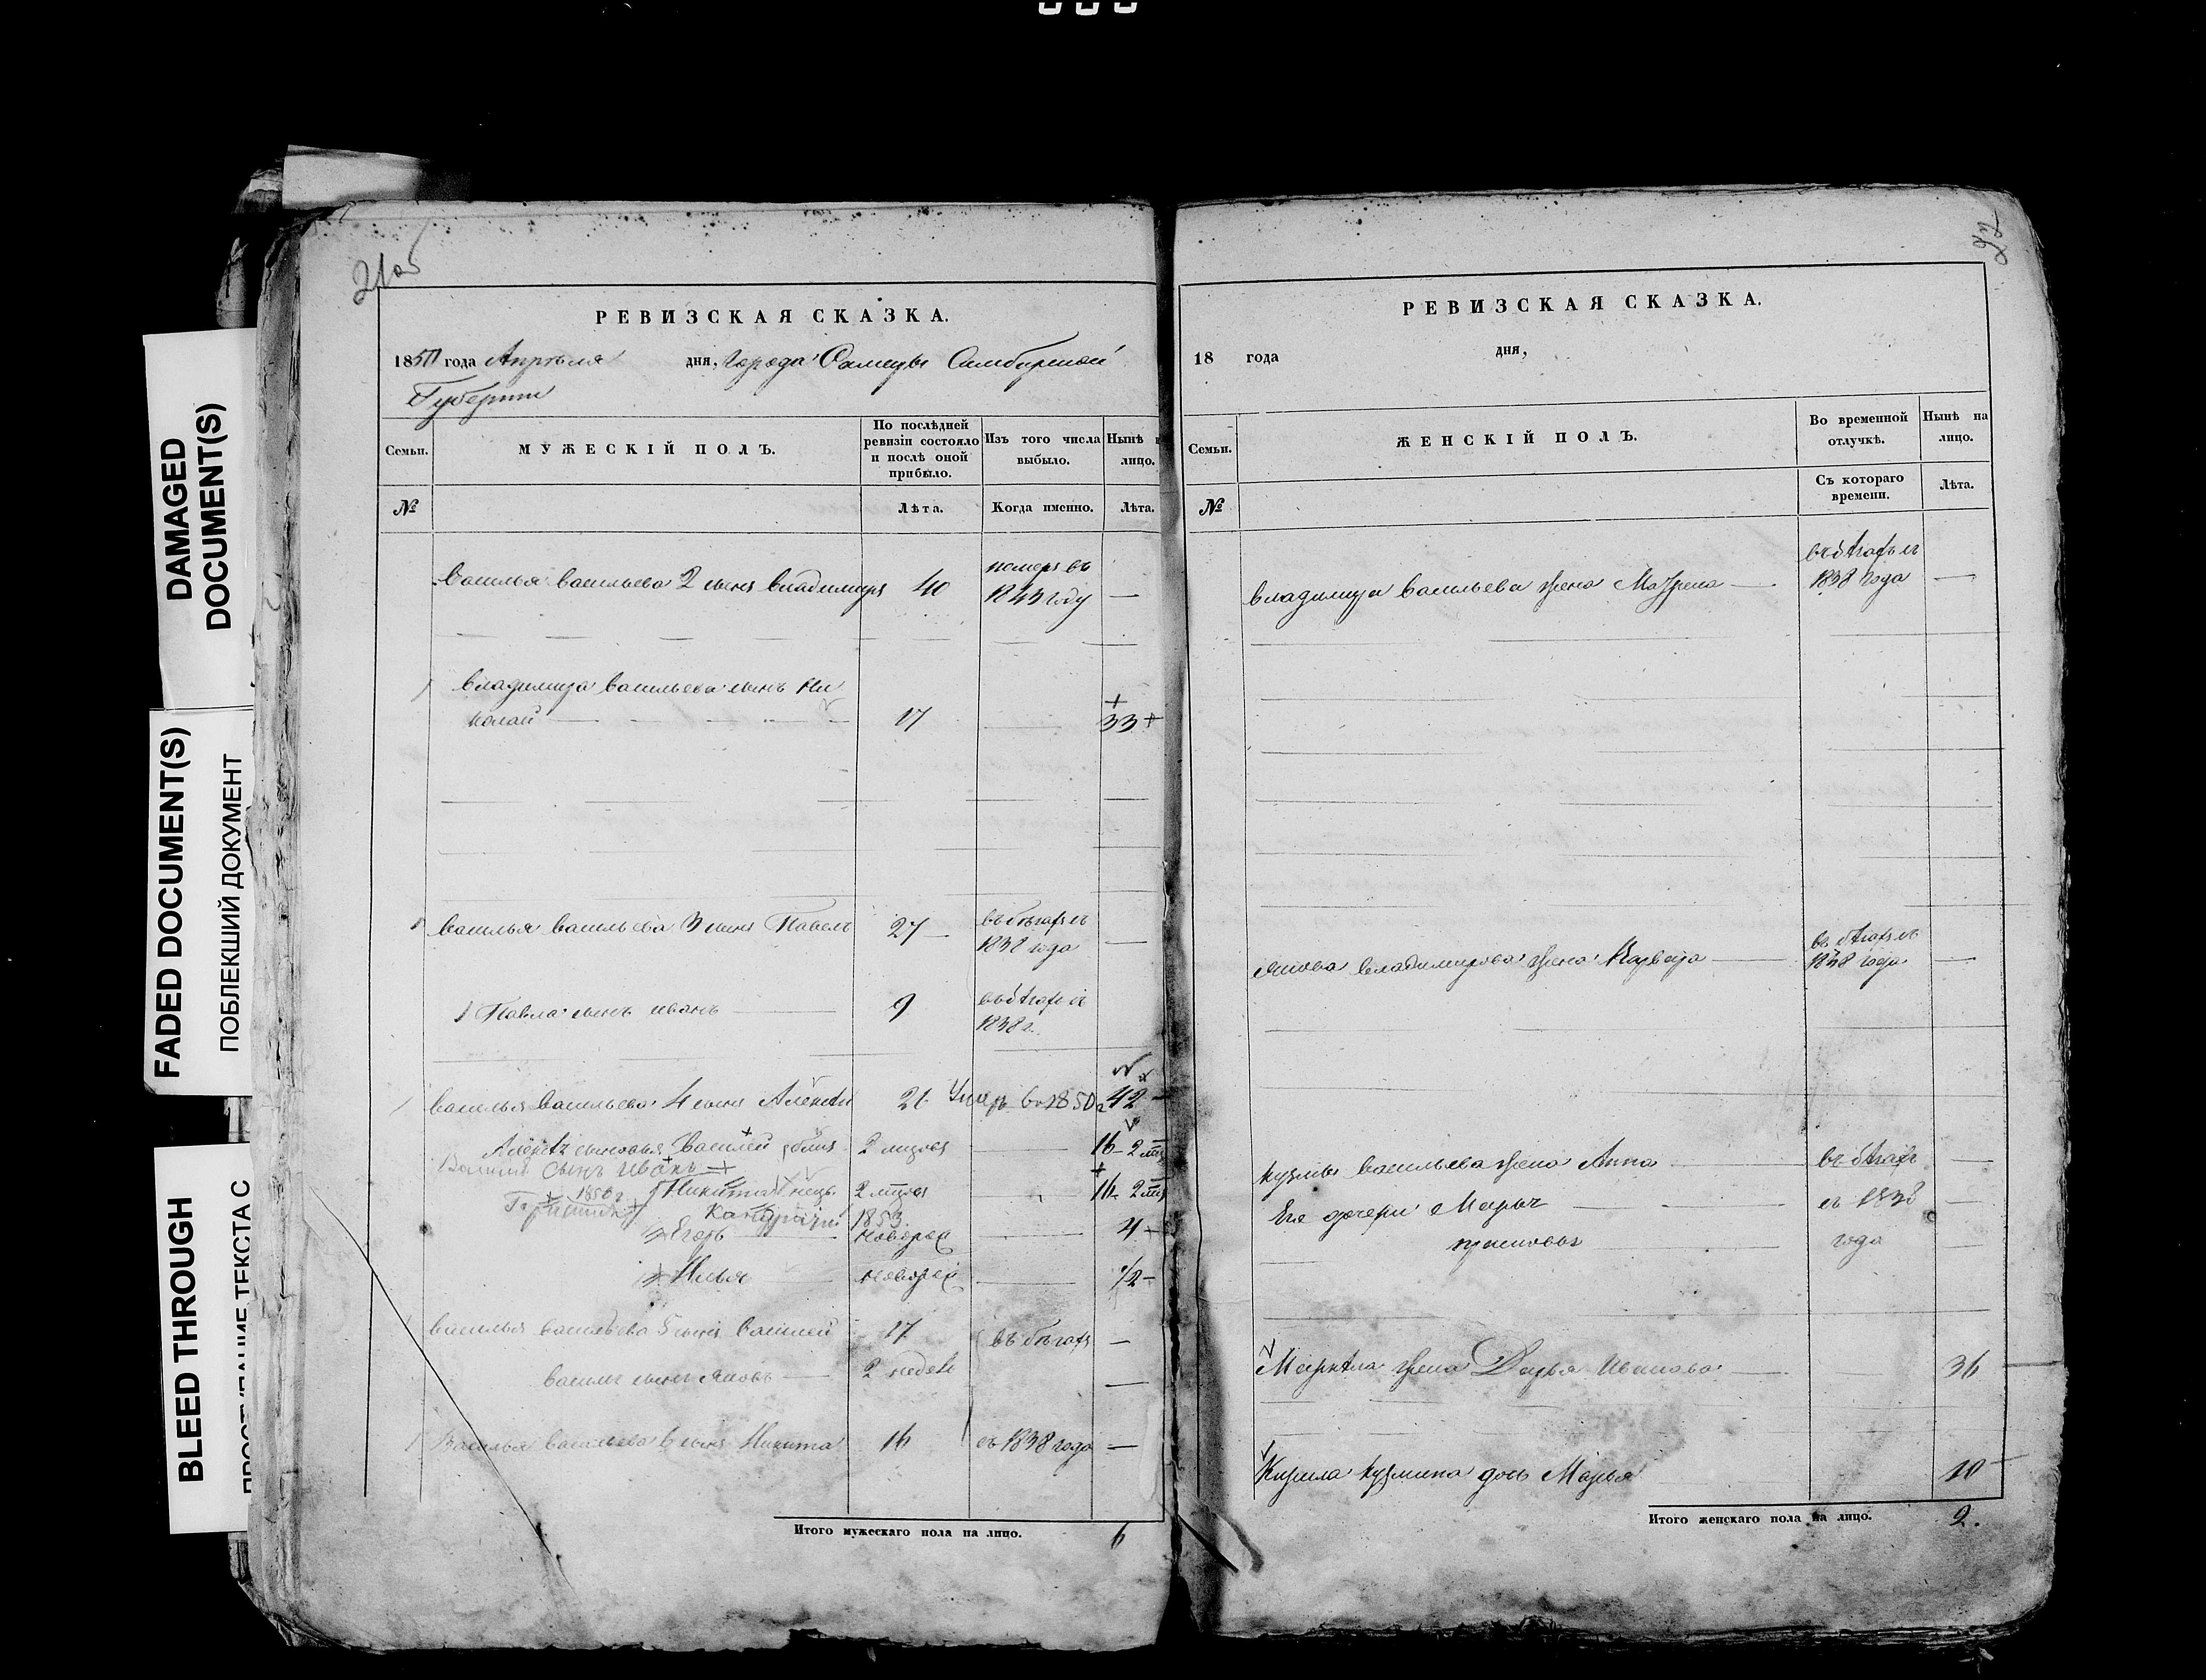 DAMAGED
DOCUMENT(S)
FADED DOCUMENT(S)
ПОБЛЕКШИЙ ДОКУМЕНТ
BLEED THROUGH
ТЕКСТА С
21об
РЕВИЗСКАЯ СКАЗКА.
1850 года Апреля дня, города Самары Симбирской
Губернии
Семьи.
МУЖЕСКІЙ ПОЛЪ.
По послѣдней
ревизіи состояло
и послѣ оной
прибыло.
Изъ того числа
выбыло.
Нынѣ
лицо.
№
Лѣта.
Когда именно.
Лѣта.
Василья Васильева 2 сынъ Владимиръ 40 померъ въ
1843 году —
Владимира Васильева сынъ Ни
колай 17 33
Василья Васильева 3 сынъ Павелъ 27 въ бѣгахъ съ
1838 года —
Павла сынъ Иванъ 9 въ бѣгахъ съ
1838 г.
Василья Васильева 4 сынъ Алексѣй 21 Умеръ 1850 г 42
Алексѣя сыновья Василей 2 мѣсяца 16
сынъ Иванъ
1850 г Никита 2 16
1853
Егоръ новорож 4
Илья новорож 1/2
Василья Васильева 5 сынъ Василей 17 въ бѣгахъ —
Василья сынъ Яковъ 2 недели —
Василья Васильева 6 сынъ Никита 16 съ 1838 года —
Итого мужескаго пола на лицо. 6
22
РЕВИЗСКАЯ СКАЗКА.
18 года дня,
Семьи.
ЖЕНСКІЙ ПОЛЪ.
Во временной
отлучкѣ.
Нынѣ на
лицо.
№
Съ котораго
времени.
Лѣта.
Владимира Васильева жена Матрена въ бѣгахъ съ
1838 года —
Владимирова жена въ бѣгахъ съ
1838 года —
Кузмы Васильева жена Анна въ бѣгахъ —
Его дочери Марья съ 1838 —
года —
жена Дарья Иванова 36
Кирила Кузмина дочь Марья 10
Итого женскаго пола на лицо. 2.